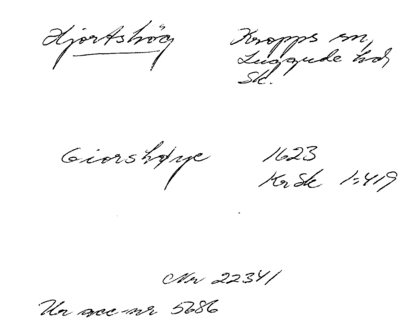 Hjortshög
Kropps sn,
Luggude hd,
Sk.
Giorshøye
1623
KrSk 1:419
Nr 22341
Ur acc-nr 5686